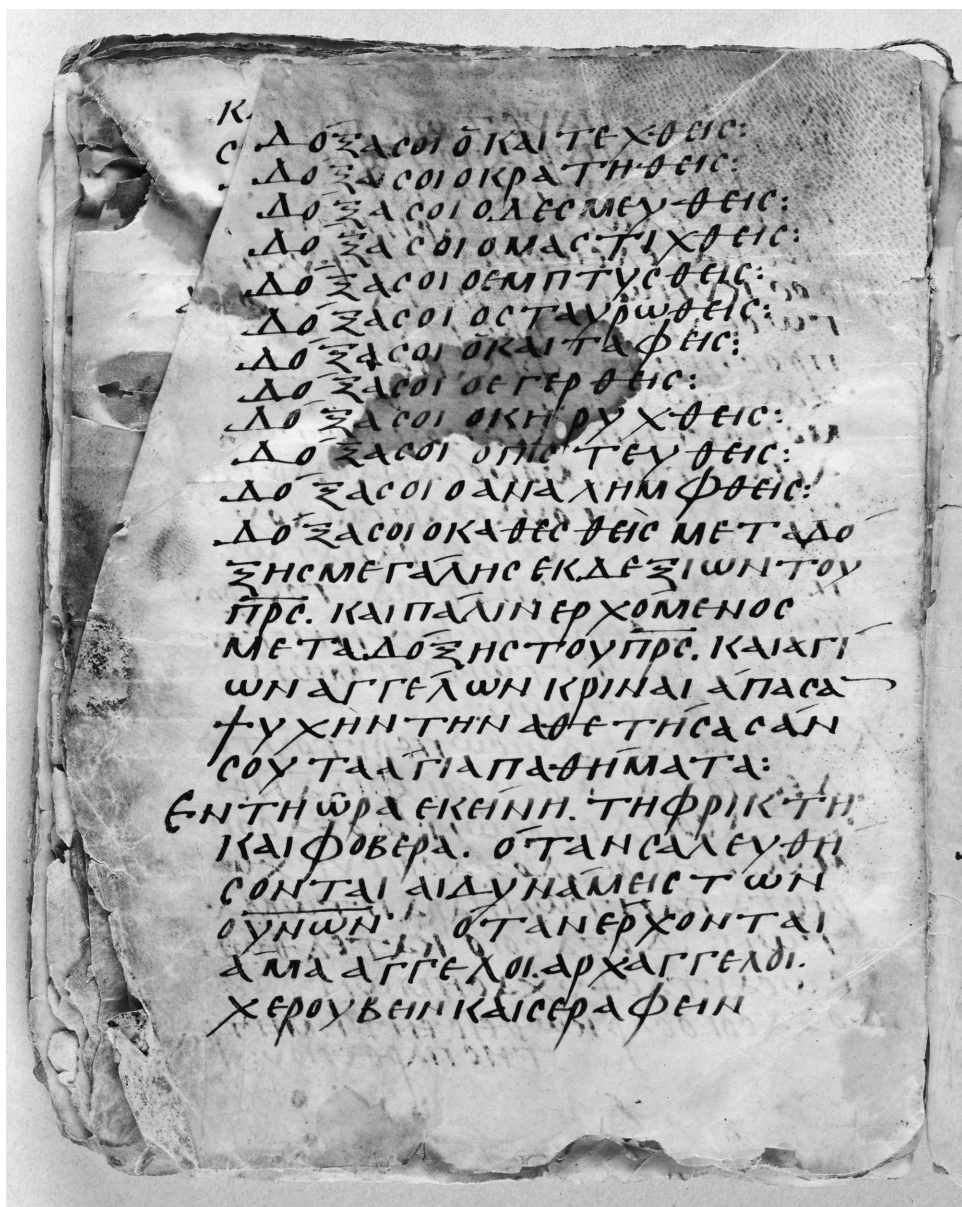 Κ
ΔΟΞΑ ϹΟΙ Ὁ ΚΑΙ ΤΕΧΘΕΙϹ:
Ϲ
ΔΟΞΑ ϹΟΙ Ο ΚΡΑΤΗΘΕΙϹ:
ΔΟΞΑ ϹΟΙ Ο ΔΕϹΜΕΥΘΕΙϹ:
ΔΟΞΑ ϹΟΙ Ο ΜΑϹΤΙΧΘΕΙϹ:
ΔΟΞΑ ϹΟΙ Ο ΕΜΠΤΥϹΘΕΙϹ:
ΔΟΞΑ ϹΟΙ Ο ϹΤΑΥΡΩΘΕΙϹ:
ΔΟΞΑ ϹΟΙ Ὁ ΚΑΙ ΤΑΦΕΙϹ:
ΔΟΞΑ ϹΟΙ Ο ΕΓΕΡΘΕΙϹ:
ΔΟΞΑ ϹΟΙ Ο ΚΗΡΥΧΘΕΙϹ:
ΔΟΞΑ ϹΟΙ Ο ΠΙϹΤΕΥΘΕΙϹ:
ΔΟΞΑ ϹΟΙ Ο ΑΝΑΛΗΜΦΘΕΙϹ:
ΔΟΞΑ ϹΟΙ Ο ΚΑΘΕϹΘΕΙϹ ΜΕΤΑ ΔΟ
ΞΗϹ ΜΕΓΑΛΗϹ ΕΚ ΔΕΞΙΩΝ ΤΟΥ
Π̅Ρ̅Ϲ̅. ΚΑΙ ΠΑΛΙΝ ΕΡΧΟΜΕΝΟϹ
ΜΕΤΑ ΔΟΞΗϹ ΤΟΥ Π̅Ρ̅Ϲ̅. ΚΑΙ ΑΓΙ
ΩΝ ΑΓΓΕΛΩΝ ΚΡΙΝΑΙ ΑΠΑϹΑ
ΨΥΧΗΝ ΤΗΝ ΑΘΕΤΗϹΑϹΑΝ
ϹΟΥ ΤΑ ΑΓΙΑ ΠΑΘΗΜΑΤΑ:
ΕΝ ΤΗ ΩΡΑ ΕΚΕΙΝΗ. ΤΗ ΦΡΙΚΤΗ
ΚΑΙ ΦΟΒΕΡΑ. ΟΤΑΝ ϹΑΛΕΥΘΗ
ϹΟΝΤΑΙ ΑΙ ΔΥΝΑΜΕΙϹ ΤΩΝ
Ο̅Υ̅Ν̅Ω̅Ν̅ ΟΤΑΝ ΕΡΧΟΝΤΑΙ
ΑΜΑ ΑΓΓΕΛΟΙ. ΑΡΧΑΓΓΕΛΟΙ.
ΧΕΡΟΥΒΕΙΝ ΚΑΙ ϹΕΡΑΦΕΙΝ